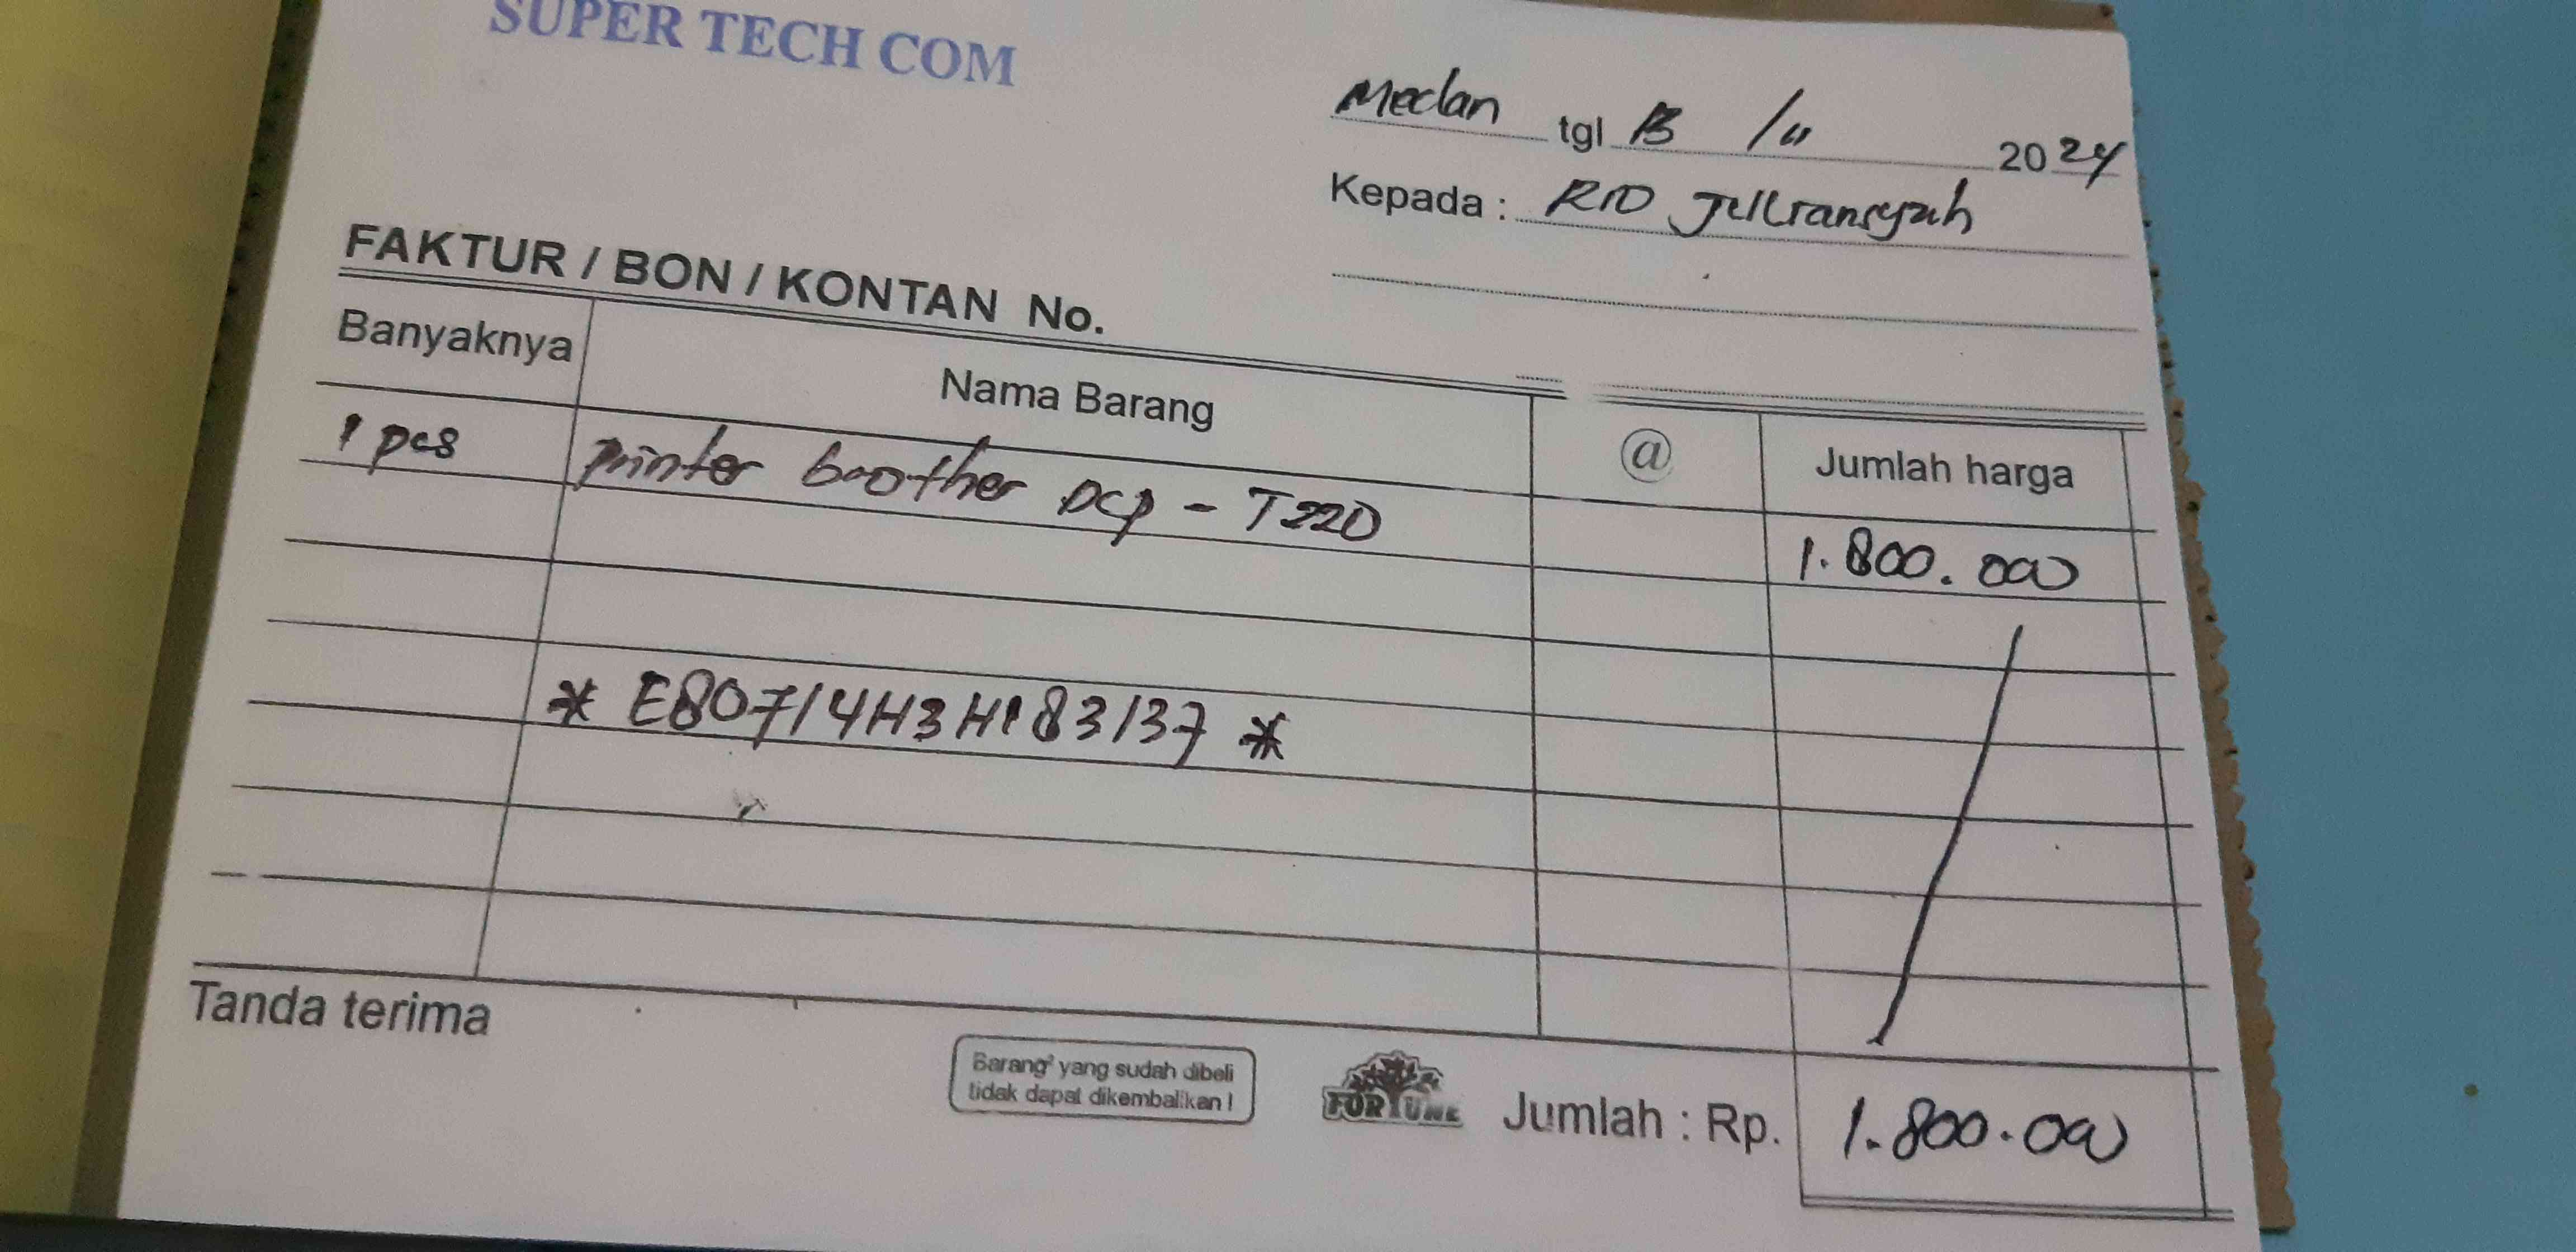 SUPER TECH COM
Medan tgl 13 /11 2024
Kepada : RIO Jullransyah
FAKTUR / BON / KONTAN No.
Banyaknya Nama Barang @ Jumlah harga
1 pcs printer brother DCP - T220 1.800.000
* E80714H3H183137 *
Tanda terima
Barang² yang sudah dibeli
tidak dapat dikembalikan !
FORTUNE
Jumlah : Rp. 1.800.000